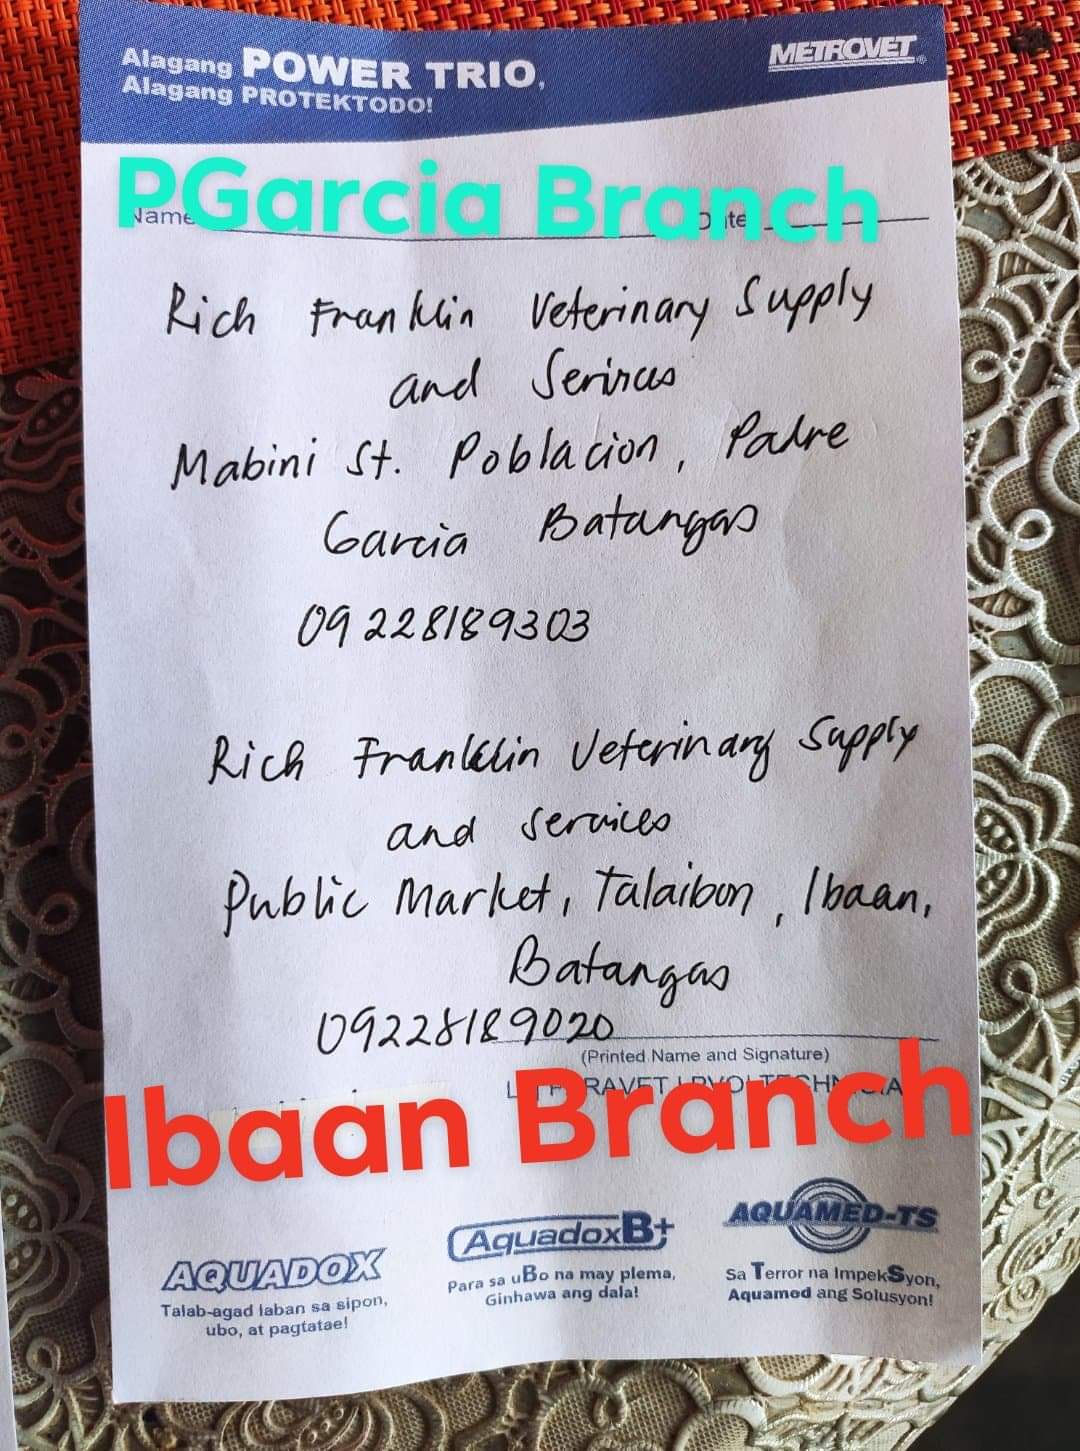 Alagang POWER TRIO,
Alagang PROTEKTODO!
METROVET®
PGarcia Branch
Name
Date
Rich Franklin Veterinary Supply
and Serivces
Mabini St. Poblacion, Padre
Garcia Batangas
09228189303
Rich Franklin Veterinary Supply
and services
Public Market, Talaibon, Ibaan,
Batangas
09228189020
(Printed Name and Signature)
Ibaan Branch
AQUADOX
Talab-agad laban sa sipon,
ubo, at pagtatae!
AquadoxB+
Para sa uBo na may plema,
Ginhawa ang dala!
AQUAMED-TS
Sa Terror na ImpekSyon,
Aquamed ang Solusyon!